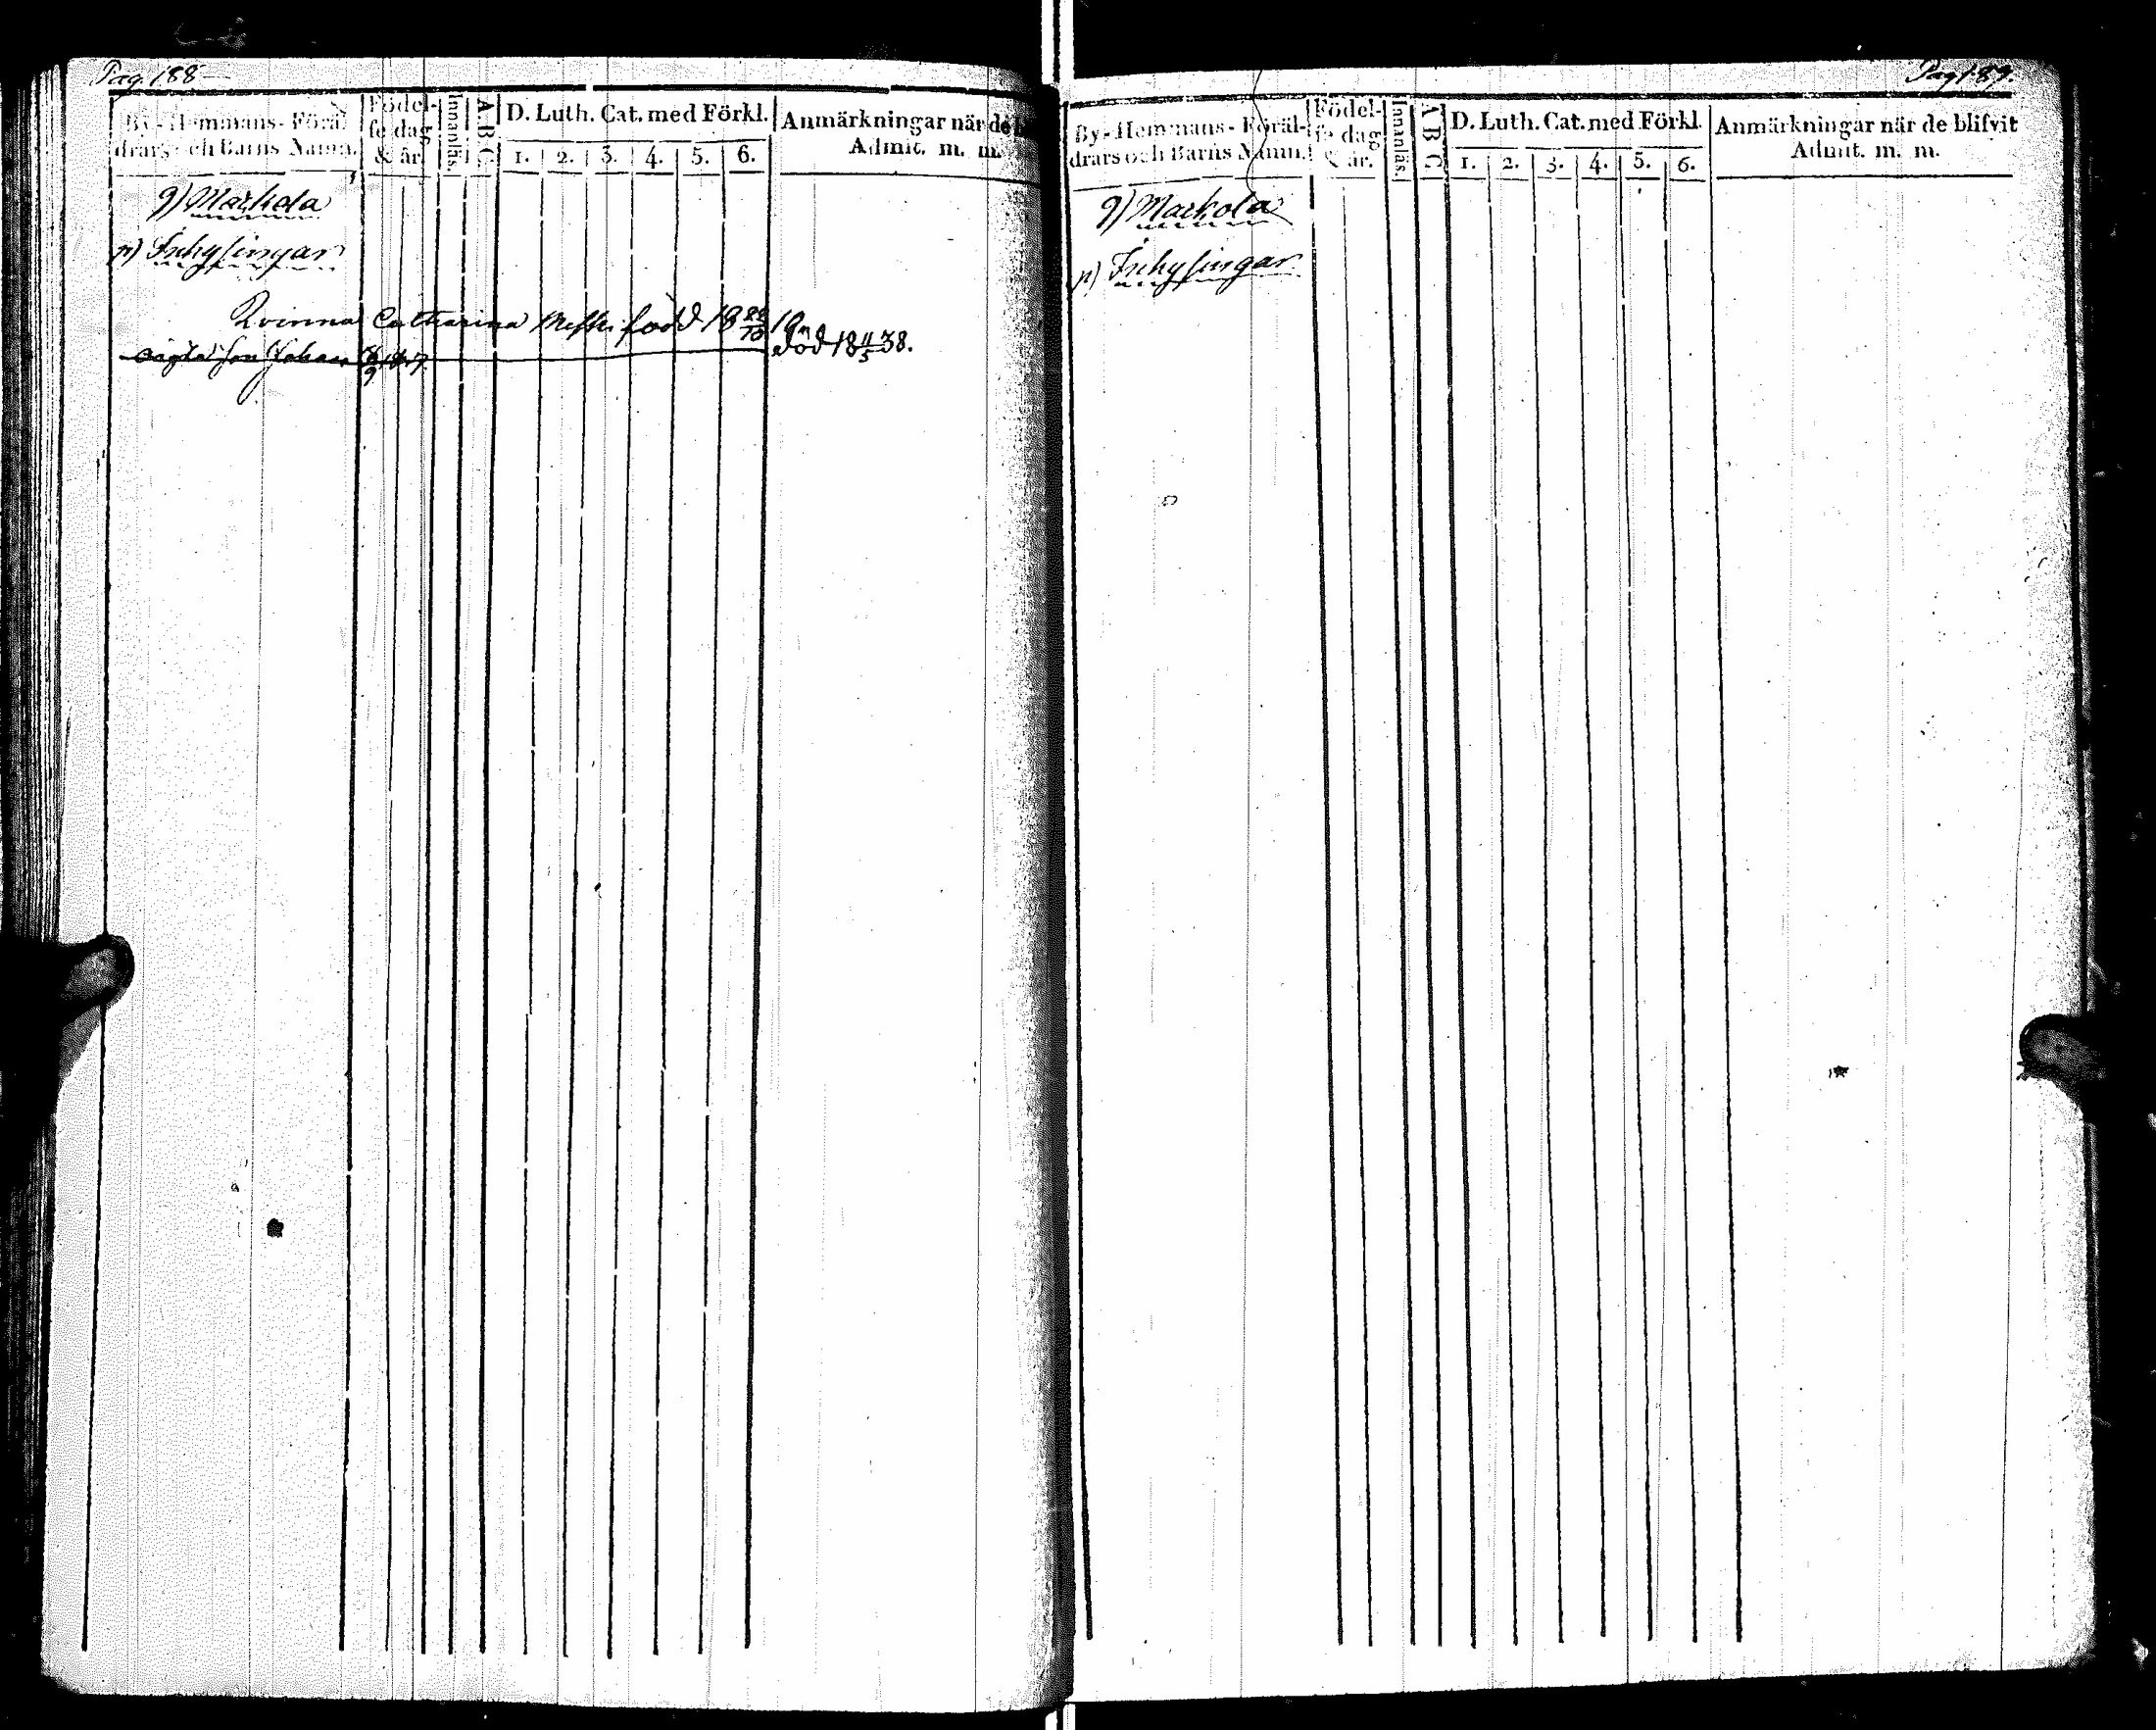 Pag. 188
By-Hemmans-Föräl-
drars och Barns Namn.
Födel-
se dag
& år.
Innanläs.
A.B.C.
D. Luth. Cat. med Förkl.
1. 2. 3. 4. 5. 6.
Anmärkningar när de
Admit. m. m.
9) Markola
n) Inhysingar
Qvinna Catharina född 18 22/10 10
son Johan död 18 11/5 38.
Pag 189.
By-Hemmans-Föräl-
drars och Barns Namn.
Födel-
se dag
& år.
Innanläs.
A B C
D. Luth. Cat. med Förkl.
1. 2. 3. 4. 5. 6.
Anmärkningar när de blifvit
Admit. m. m.
9) Markola
n) Inhysingar